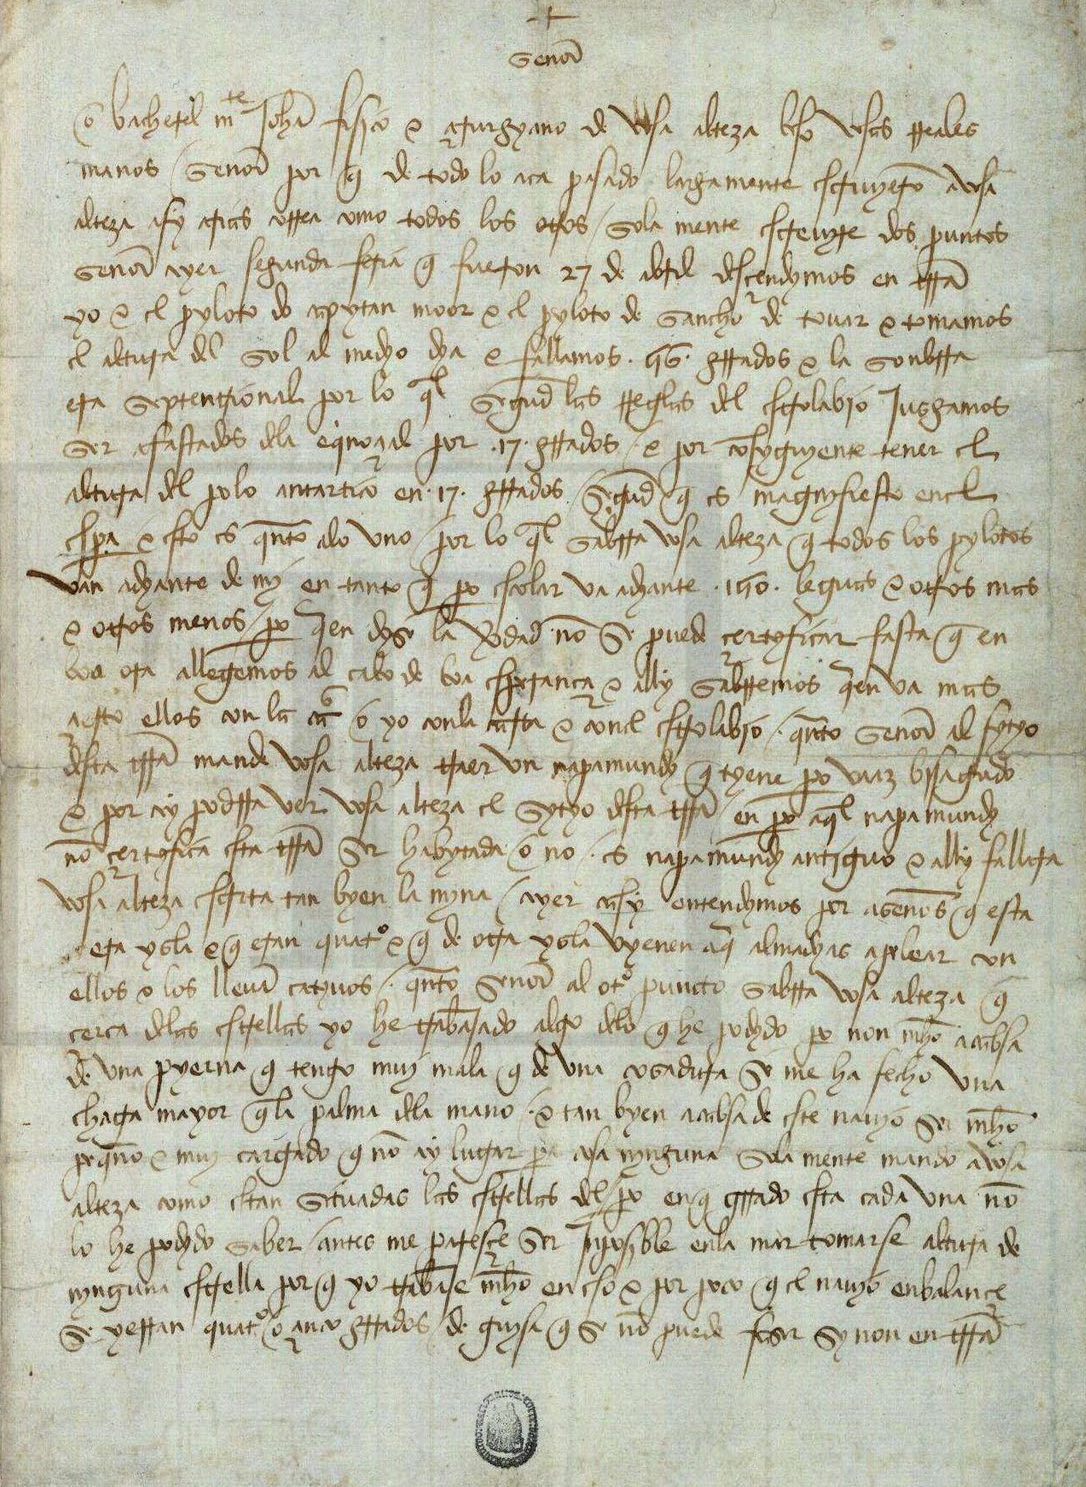 Señor
o bacherel mestre Johã fisico & çirurgyano de vosa alteza beso vosas rreales
manos / Señor por q̃ de todo lo aca pasado largamente escriuyerõ a vosa
alteza asy arias correa como todos los otros / sola mente escreuyre dos puntos
Señor ayer segunda feria q̃ fueron 27 de abril desçendymos en trrã
yo & el pyloto do capytan moor & el pyloto de Sancho de touar & tomamos
el altura del sol al medyo dya & fallamos . 56 . grrados & la sonbrra
era septentrional por lo q̃l segud̃ las rreglas del estrolabjo Jusgamos
ser afastados dela eq̃noçial por .17. grrados / & por cõsyguyente tener el
altura del polo antartico en .17. grrados / segud̃ q̃ es magnyfiesto en el
espera & esto es quãto alo vno / por lo q̃l sabrra vosa alteza q̃ todos los pylotos
van adyante de my en tanto q̃ pero escolar va adyante .150. leguas & otros mas
& otros menos / pero q̃en dyse la verdad nõ se puede certyficar fasta q̃ en
boa ora allegemos al cabo de boa esperança & ally sabrremos q̃en va mas
çierto ellos con la carta o yo con la carta & con el estrolabjo . quãto Señor al sytyo
desta trrã mande vosa alteza traer vn napamundy q̃ tyene pero vaaz bisagudo
& por ay podrra ver vosa alteza el sytyo desta trrã / en pero aq̃l napamundy
nõ çertyfica esta trrã ser habytada o no . es napamundy antiguo & ally fallara
vosa alteza escrita tan byen la myna / ayer casy entendymos por aseños q̃ esta
era ysla & q̃ eran quatro & q̃ de otra ysla vyenen aq̃ almadyas a pelear con
ellos & los lleuã catyuos / . quãto Señor al otro puncto sabrra vosa alteza q̃
cerca delas estrellas yo he trabajado algo delo q̃ he podydo pero non mucho a cabsa
de vna pyerna q̃ tengo muy mala q̃ de vna cosadura se me ha fecho vna
chaga mayor q̃ la palma dela mano . & tan byen a cabsa de este nauyo ser mucho
pequeno & muy cargado q̃ nõ ay lugar pera cosa nynguna sola mente mando a vosa
alteza como estan situadas las estrellas del / pero en q̃ grrado esta cada vna nõ
lo he podydo saber / antes me paresçe ser Jnposible en la mar tomarse altura de
nynguna estrella por q̃ yo trabaje mucho en eso & por poco q̃ el nauyo enbalançe
se yerran quatro o çinco grrados / de guysa q̃ se nõ puede faser synon en trrã